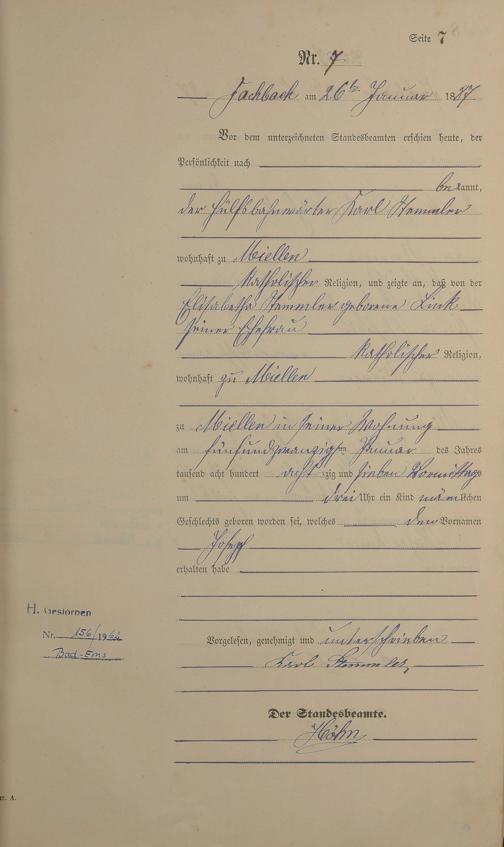 Seite 7
Nr. 7
Fachbach am 26ten Januar 1887
Vor dem unterzeichneten Standesbeamten erschien heute, der
Persönlichkeit nach
bekannt,
der Hülfsbahnwärter Karl Stemmler
wohnhaft zu Miellen
katholischer Religion, und zeigte an, daß von der
Elisabetha Stemmler geborene Link
seiner Ehefrau
katholischer Religion,
wohnhaft zu Miellen
zu Miellen in seiner Wohnung
am fünfundzwanzigsten Januar des Jahres
tausend acht hundert achtzig und sieben Vormittags
um drei Uhr ein Kind männlichen
Geschlechts geboren worden sei, welches den Vornamen
Joseph
erhalten habe
Vorgelesen, genehmigt und unterschrieben
Karl Stemmler
Der Standesbeamte.
Höhn
H. Gestorben
Nr. 156/1962
Bad-Ems
A.